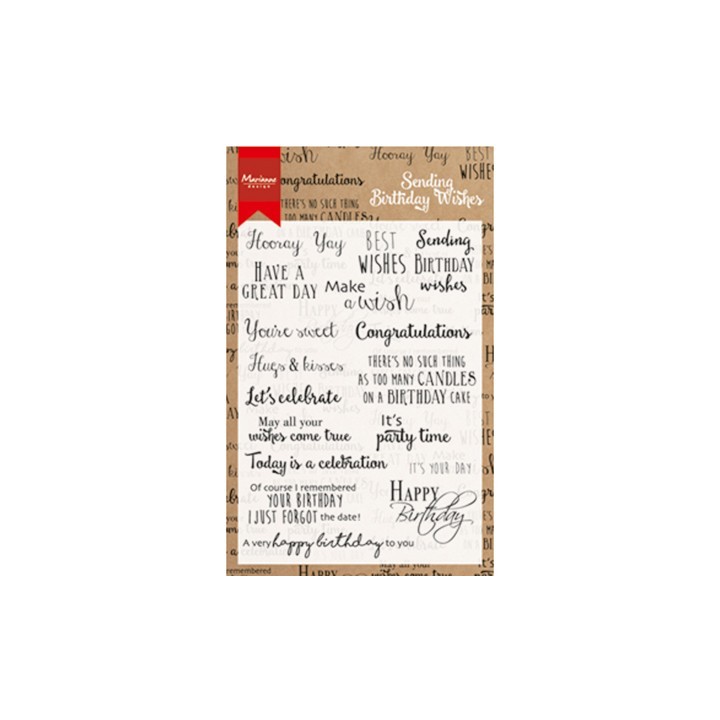 wish
Hooray Yay
BEST
WISHES
Marianne
design
ongratulations
Sending
Birthday Wishes
THERE'S NO SUCH THING
TOO MANY CANDLES
Hooray Yay
BEST
WISHES
Sending
BIRTHDAY
wishes
HAVE A
GREAT DAY
Make
a wish
You're sweet
Congratulations
Hugs & kisses
THERE'S NO SUCH THING
AS TOO MANY CANDLES
ON A BIRTHDAY CAKE
Let's celebrate
May all your
wishes come true
It's
party time
Today is a celebration
IT'S YOUR DAY
Of course I remembered
YOUR BIRTHDAY
I JUST FORGOT the date!
HAPPY
Birthday
A very happy birthday to you
remembered
HAPPY
May all your
wishes come true